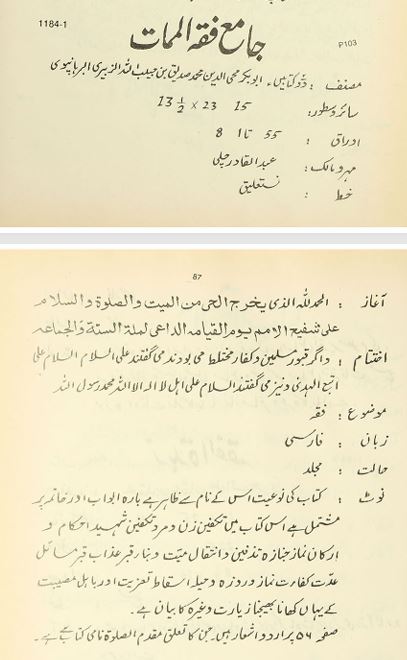 1184-1
P103
جامع فقہ الممات
مصنف : ابوبکر محی الدین محمد صدیق بن حبیب اللہ الزبیری
سائز وسطور: 15 23 × 13 ½
اوراق : 55 تا 8
مہر و مالک : عبدالقادر چلپی
خط : نستعلیق
87
آغاز : الحمد للہ الذی یخرج الحی من المیت والصلوۃ والسلام
علی شفیع الامم یوم القیامہ الداعی لملۃ السنۃ والجماعہ
اختتام : واگر قبور مسلمین وکفار مختلط می بودند می گفتند علی السلام السلام علی
اتبع الہدیٰ ونیز می گفتند السلام علی اہل لا الہ الا اللہ محمد رسول اللہ
موضوع : فقہ
زبان : فارسی
حالت : مجلد
نوٹ : کتاب کی نوعیت اس کے نام سے ظاہر ہے بارہ ابواب اور خاتم پر
مشتمل ہے اس کتاب میں تکفین زن و مرد تکفین شہید احکام و
ارکان نماز جنازہ تدفین و انتقال میت و بنا قبر عذاب قبر مسائل
عدت کفارت نماز و روزہ و حیلہ اسقاط تعزیت اور باہل مصیبت
کے یہاں کھانا بھیجنا زیارت وغیرہ کا بیان ہے۔
صفحہ ۵۶ پر اردو اشعار ہیں جن کا تعلق مقدم الصلوۃ نامی کتاب سے ہے۔